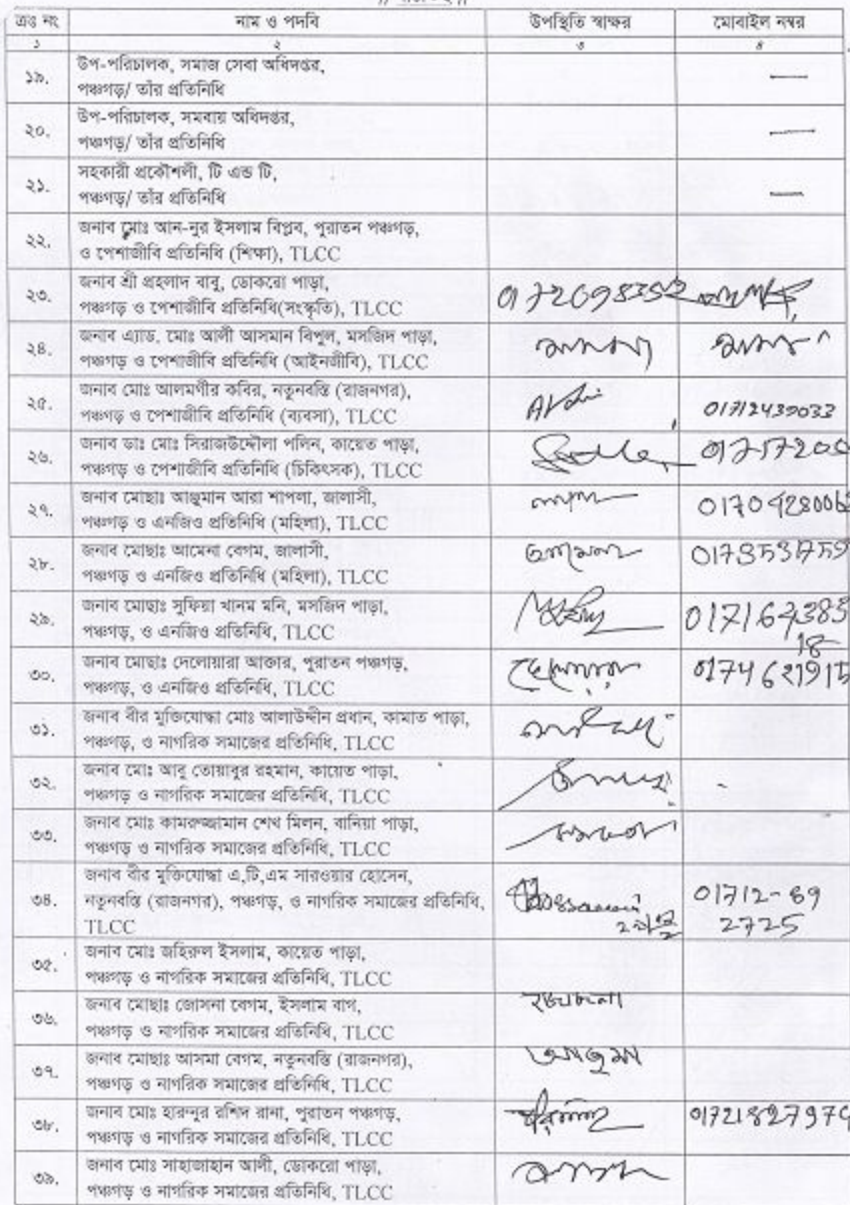 ক্রঃ নং নাম ও পদবি উপস্থিতি স্বাক্ষর মোবাইল নম্বর
১ ২ ৩ ৪
১৯. উপ-পরিচালক, সমাজ সেবা অধিদপ্তর,
পঞ্চগড়/ তাঁর প্রতিনিধি
২০. উপ-পরিচালক, সমবায় অধিদপ্তর,
পঞ্চগড়/ তাঁর প্রতিনিধি
২১. সহকারী প্রকৌশলী, টি এন্ড টি,
পঞ্চগড়/ তাঁর প্রতিনিধি
২২. জনাব মোঃ আন-নুর ইসলাম বিপ্লব, পুরাতন পঞ্চগড়,
ও পেশাজীবি প্রতিনিধি (শিক্ষা), TLCC
২৩. জনাব শ্রী প্রহলাদ বাবু, ডোকরো পাড়া,
পঞ্চগড় ও পেশাজীবি প্রতিনিধি(সংস্কৃতি), TLCC
২৪. জনাব এ্যাড. মোঃ আলী আসমান বিপুল, মসজিদ পাড়া,
পঞ্চগড় ও পেশাজীবি প্রতিনিধি (আইনজীবি), TLCC
২৫. জনাব মোঃ আলমগীর কবির, নতুনবস্তি (রাজনগর),
পঞ্চগড় ও পেশাজীবি প্রতিনিধি (ব্যবসা), TLCC 01712439033
২৬. জনাব ডাঃ মোঃ সিরাজউদ্দৌলা পলিন, কায়েত পাড়া,
পঞ্চগড় ও পেশাজীবি প্রতিনিধি (চিকিৎসক), TLCC
২৭. জনাব মোছাঃ আঞ্জুমান আরা শাপলা, জালাসী,
পঞ্চগড় ও এনজিও প্রতিনিধি (মহিলা), TLCC
২৮. জনাব মোছাঃ আমেনা বেগম, জালাসী,
পঞ্চগড় ও এনজিও প্রতিনিধি (মহিলা), TLCC
২৯. জনাব মোছাঃ সুফিয়া খানম মনি, মসজিদ পাড়া,
পঞ্চগড়, ও এনজিও প্রতিনিধি, TLCC
৩০. জনাব মোছাঃ দেলোয়ারা আক্তার, পুরাতন পঞ্চগড়,
পঞ্চগড়, ও এনজিও প্রতিনিধি, TLCC
৩১. জনাব বীর মুক্তিযোদ্ধা মোঃ আলাউদ্দীন প্রধান, কামাত পাড়া,
পঞ্চগড়, ও নাগরিক সমাজের প্রতিনিধি, TLCC
৩২. জনাব মোঃ আবু তোয়াবুর রহমান, কায়েত পাড়া,
পঞ্চগড় ও নাগরিক সমাজের প্রতিনিধি, TLCC
৩৩. জনাব মোঃ কামরুজ্জামান শেখ মিলন, বানিয়া পাড়া,
পঞ্চগড় ও নাগরিক সমাজের প্রতিনিধি, TLCC
৩৪. জনাব বীর মুক্তিযোদ্ধা এ,টি,এম সারওয়ার হোসেন,
নতুনবস্তি (রাজনগর), পঞ্চগড়, ও নাগরিক সমাজের প্রতিনিধি, 01712-69
TLCC 2725
৩৫. জনাব মোঃ জহিরুল ইসলাম, কায়েত পাড়া,
পঞ্চগড় ও নাগরিক সমাজের প্রতিনিধি, TLCC
৩৬. জনাব মোছাঃ জোসনা বেগম, ইসলাম বাগ,
পঞ্চগড় ও নাগরিক সমাজের প্রতিনিধি, TLCC
৩৭. জনাব মোছাঃ আসমা বেগম, নতুনবস্তি (রাজনগর),
পঞ্চগড় ও নাগরিক সমাজের প্রতিনিধি, TLCC
৩৮. জনাব মোঃ হারুনুর রশিদ রানা, পুরাতন পঞ্চগড়,
পঞ্চগড় ও নাগরিক সমাজের প্রতিনিধি, TLCC
৩৯. জনাব মোঃ সাহাজাহান আলী, ডোকরো পাড়া,
পঞ্চগড় ও নাগরিক সমাজের প্রতিনিধি, TLCC